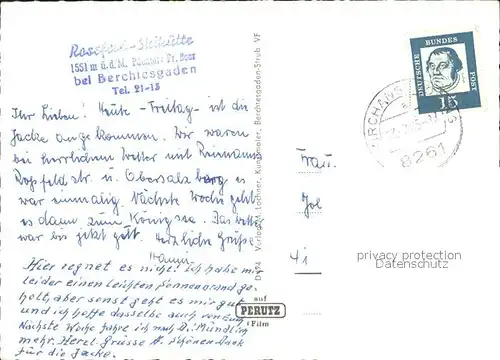 Rossfeld-Skihütte
1551 m ü.d.M. Pächter: Fr. Beer
bei Berchtesgaden
Tel. 21-15
Ihr Lieben! Heute - Freitag - ist die
Jacke angekommen. Wir waren
bei herrlichem Wetter mit
Roßfeldstr. u. Obersalzberg es
war einmalig. Nächste Woche geht
es dann zum Königssee. Das Wetter
war bis jetzt gut. Herzliche Grüße
Hanni
Hier regnet es nicht! Ich habe mir
leider einen leichten Sonnenbrand ge-
holt, aber sonst geht es mir gut
und ich hoffe dasselbe auch von Euch.
Nächste Woche fahre ich nach
mehr. Herzl. Grüsse u. schönen Dank
für die Jacke.
D 574 Verlag L. Lochner, Kunstmaler, Berchtesgaden-Strub VF
auf
PERUTZ
Film
DEUTSCHE BUNDESPOST
15
8261
Frau
privacy protection
Datenschutz